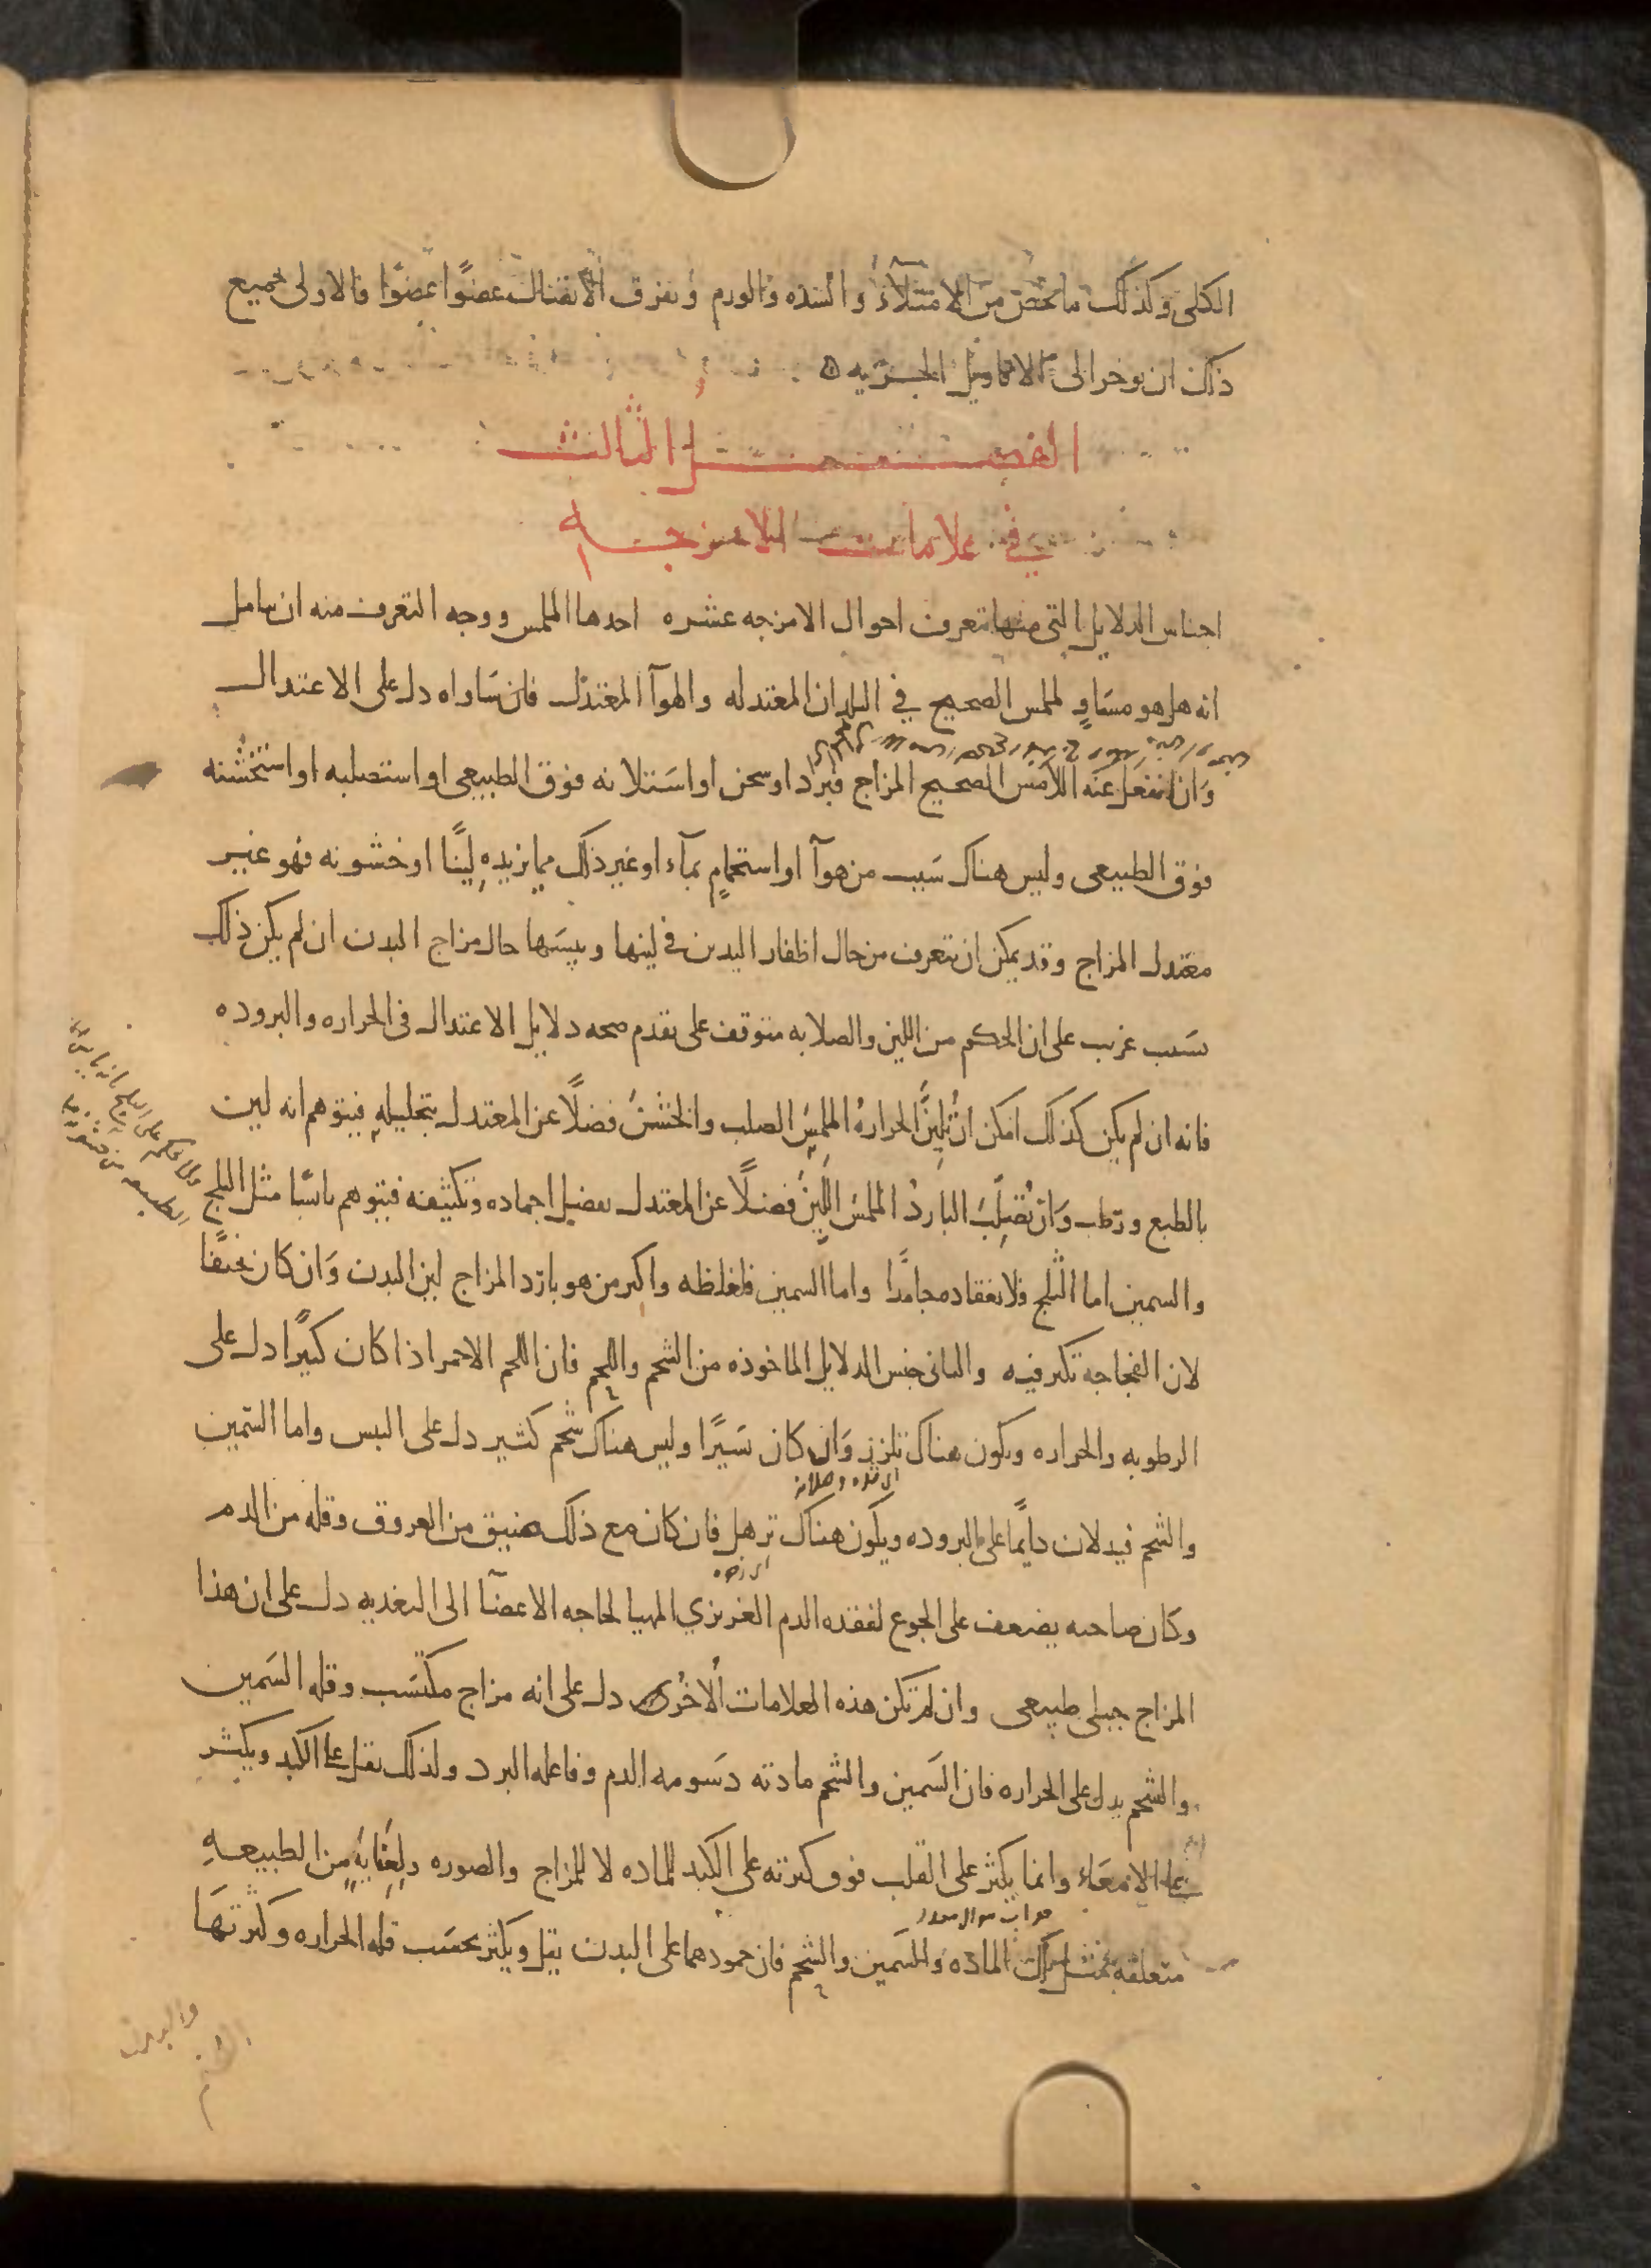 الكلى وكذلك ما يختص من الامتلآء والسده والورم وتفرق الاتصال عضوًا عضوًا فالاولى بجميع
ذلك ان يوخر الى الاقاويل الجزييه ٥
الفصل الثالث
في علامات الامزجه
اجناس الدلايل التى منها تتعرف احوال الامزجه عشره احدها الملمس ووجه التعرف منه ان يتامل
انه هل هو مساوٍ لملمس الصحيح في البلدان المعتدله والهوآ المعتدل فان ساواه دل على الاعتدال
وان انفعل عنه اللامس الصحيح المزاج فبرد او سخن او استلانه فوق الطبيعى او استصلبه او استخشنه
فوق الطبيعى وليس هناك سبب من هوآ او استحمامٍ بمآء او غير ذلك مما يزيده لينًا او خشونه فهو غير
معتدل المزاج وقد يمكن ان يتعرف من حال اظفار اليدين في لينها ويبسها حال مزاج البدن ان لم يكن ذلك
لسبب غريب على ان الحكم من اللين والصلابه متوقف على تقدم صحه دلايل الاعتدال في الحراره والبروده
فانه ان لم يكن كذلك امكن ان تُلين الحرارهُ الملمس الصلب والخشن فضلًا عن المعتدل بتحليله فيتوهم انه لين
بالطبع ورطب وان يُصلب الباردُ الملمس اللين فضلًا عن المعتدل بفضل اجماده وتكثيفه فيتوهم يابسًا مثل الثلج
والسمين اما الثلج فلانعقاده جامدًا واما السمين فلغلظه واكثر من هو بارد المزاج لين البدن وان كان نحيفًا
لان الفجاجه تكثر فيه والثانى جنس الدلايل الماخوذه من الشحم واللحم فان اللحم الاحمر اذا كان كثيرًا دل على
الرطوبه والحراره ويكون هناك تلزز وان كان يسيرًا وليس هناك شحم كثير دل على اليبس واما السمين
والشحم فيدلان دايمًا على البروده ويكون هناك ترهل فان كان مع ذلك ضيق من العروق وقله من الدم
وكان صاحبه يضعف على الجوع لفقده الدم الغريزي المهيا لحاجه الاعضآ الى التغديه دل على ان هذا
المزاج جبلى طبيعى وان لم تكن هذه العلامات الاخرى دل على انه مزاج مكتسب وقله السمين
والشحم يدل على الحراره فان السمين والشحم مادته دسومه الدم وفاعله البرد ولذلك يقل على الكبد ويكثر
على الامعاء وانما يكثر على القلب فوق كثرته على الكبد للماده لا للمزاج والصوره ولعنايهٍ من الطبيعهِ
متعلقه بمثل تلك الماده والسمين والشحم فان جمودهما على البدن يقل ويكثر بحسب قله الحراره وكثرتها